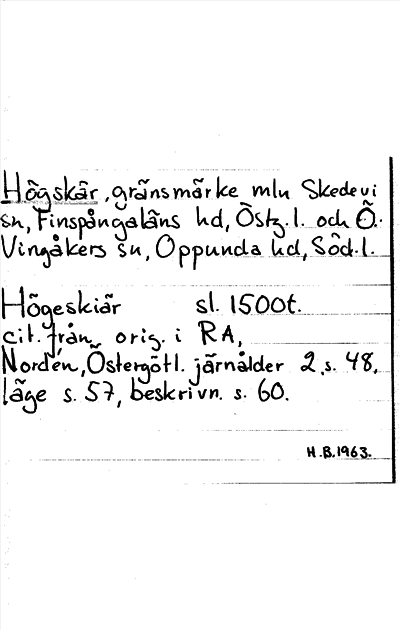 Högskär, gränsmärke mln Skedevi
sn, Finspångaläns hd, Östg.l. och Ö.
Vingåkers sn, Oppunda hd, Söd.l.
Högeskiär sl. 1500t.
cit. från orig. i RA,
Nordén, Östergötl. järnålder 2 s. 48,
läge s. 57, beskrivn. s. 60.
H.B.1963.